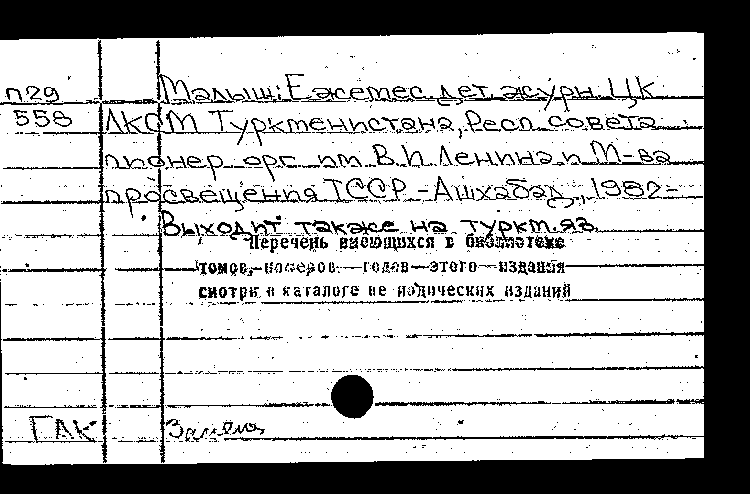 п29 Малыш: Ежемес. дет. журн. ЦК
558 ЛКСМ Туркменистана, Респ. совета
пионер. орг. им. В.И. Ленина и М-ва
просвещения ТССР. - Ашхабад, 1982-
Выходит также на туркм. яз.
Перечень имеющихся в библиотеке
томов, номеров, годов этого издания
смотри в каталоге пе иодических изданий
ГАК Замена